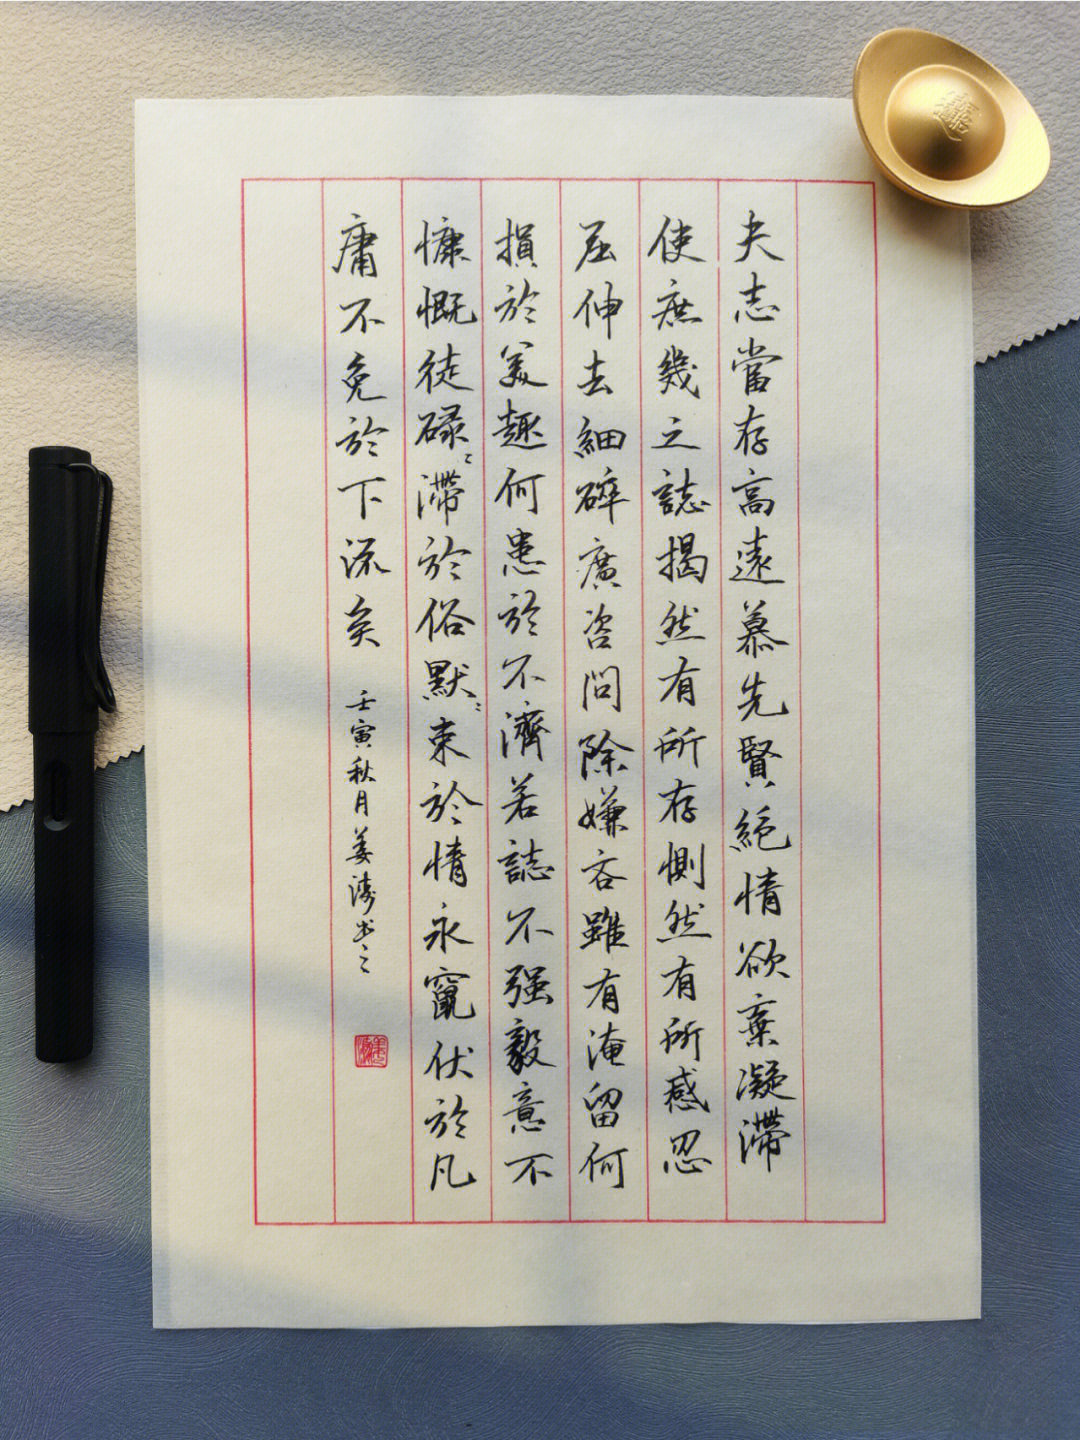 夫志當存高遠慕先賢絕情欲棄凝滯
使庶幾之誌揭然有所存惻然有所感忍
屈伸去細碎廣咨問除嫌吝雖有淹留何
損於美趣何患於不濟若誌不强毅意不
慷慨徒碌々滯於俗默々束於情永竄伏於凡
庸不免於下流矣
壬寅秋月姜涛书之